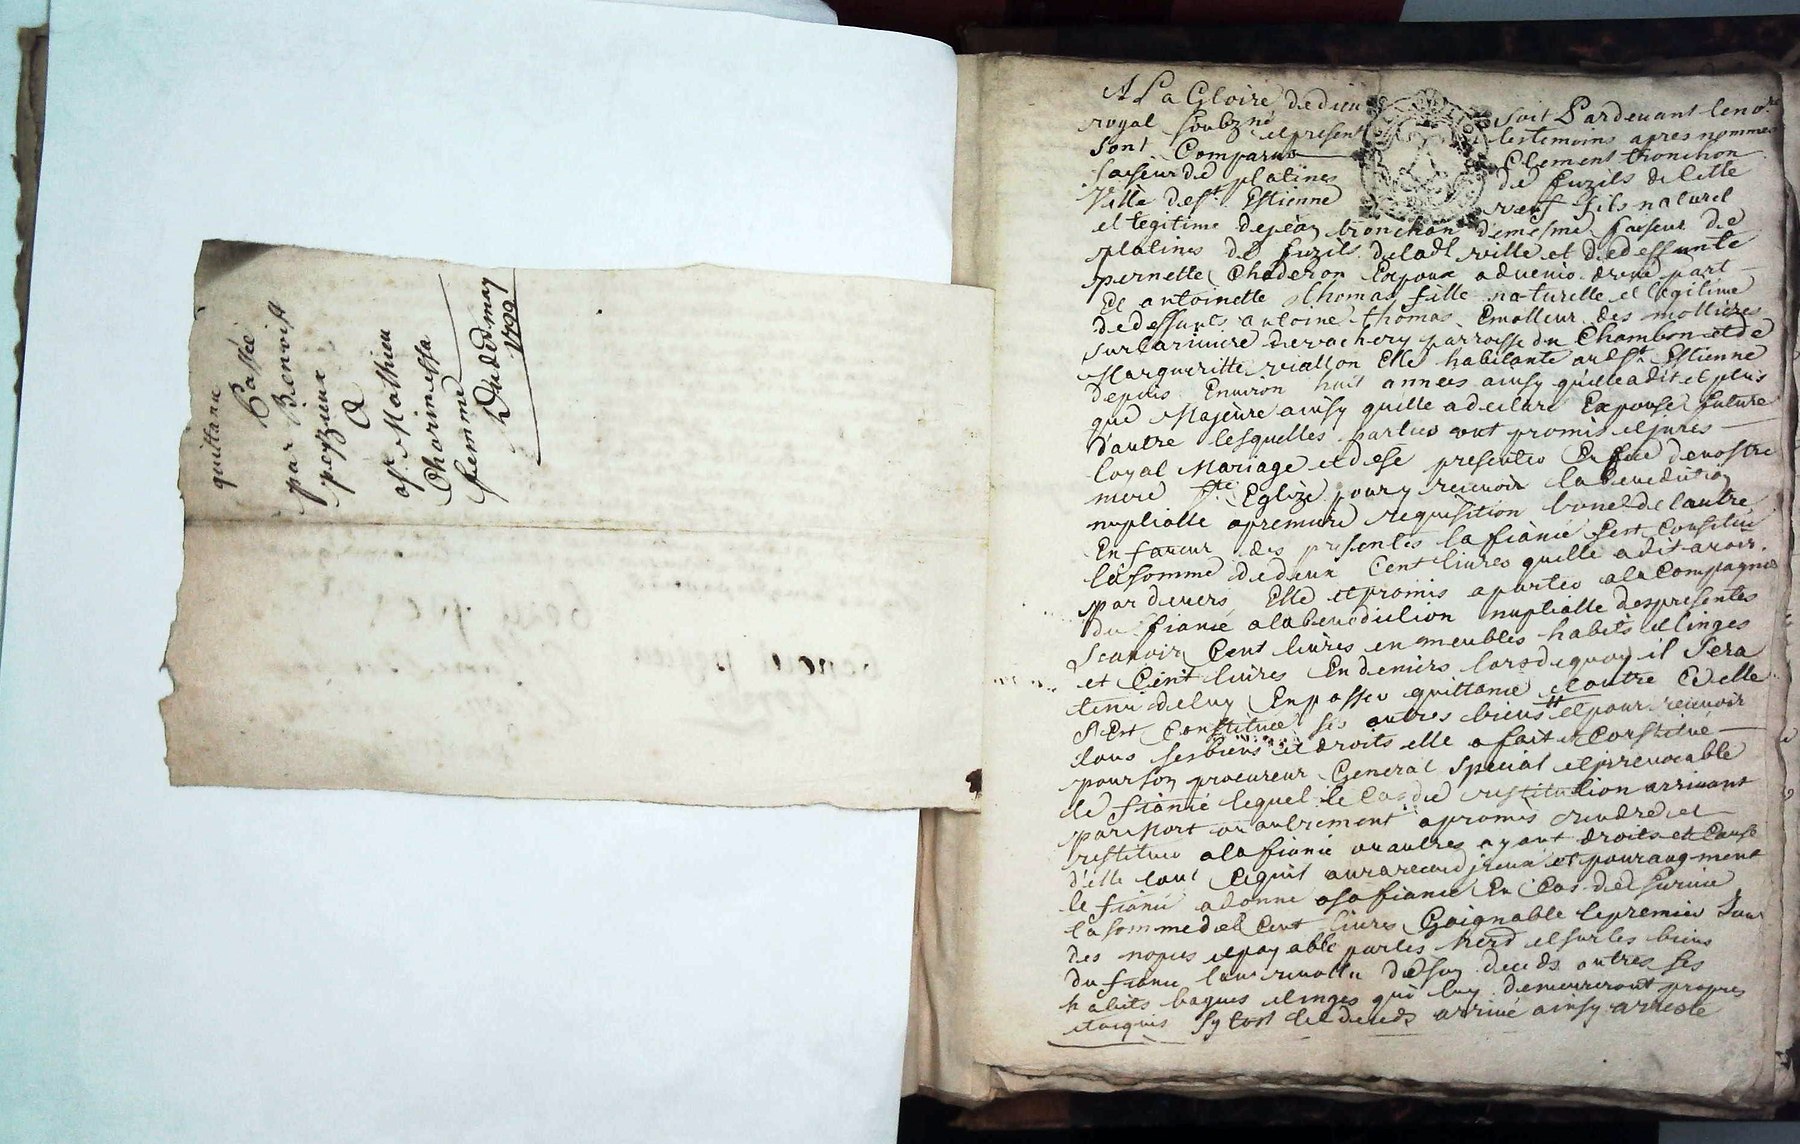 quittance
Passée
par Benoist
peyzieux
A
osr. Mathieu
Charinessa
femme
Du dernay
1729
A La Gloire de dieu soit Pardevant le nore
royal soubzné et present les temoins apres nommes
sont Comparus Clement tronchon
faiseur de platines de fuzils de cette
Ville de st Estienne veuf fils naturel
et legitime de jean tronchon de mesme faiseur de
platines de fuzils de ladt ville et de deffunte
pernette Chaderon Espoux advenir d'une part
Et antoinette thomas fille naturelle et legitime
de deffunts antoine thomas Emolleur des mollieres
sur la riviere de vachery parroisse du Chambon et de
Margueritte viallon Elle habitante aud st Estienne
depuis Environ huit années ainsy quelle a dit et plus
que Majeure ainsy quelle a declaré Expouse future
d'autre lesquelles parties ont promis et jurés
loyal Mariage et de se presenter En face de nostre
mere ste Eglize pour y recevoir la benediction
nuptialle a premiere requisition l'une de l'autre
En faveur des presentes la fiancée s'est Constitué
la somme de deux Cent livres quelle a dit avoir
par devers Elle et promis aporter a la Compagnie
du fiancé a la benediction nuptialle des presentes
scavoir Cent livres en meubles habits et linges
et Cent livres En deniers lors de quoy il sera
tenu de luy En passer quittance et outre Ce elle
s'Est Constituée ses autres biens et pour recevoir
tous ses biens et droits elle a fait et Constitué
pour son procureur General special et irrevocable
le fiancé lequel le Cas de restitution arrivant
par Mort ou autrement a promis rendre et
restituer a la fiancée ou autres ayant droits et Cause
d'elle tout Ce quil aura receu d'icelle et pour augment
le fiancé a donné a sa fiancée En Cas de survie
la somme de Cent livres Gaignable le premier jour
des nopces et payable par les herd et sur les biens
du fiancé l'an revollu de son deceds outres ses
habits bagues et linges qui luy demeureront propres
et acquis sytost le deceds arrivé ainsy arresté